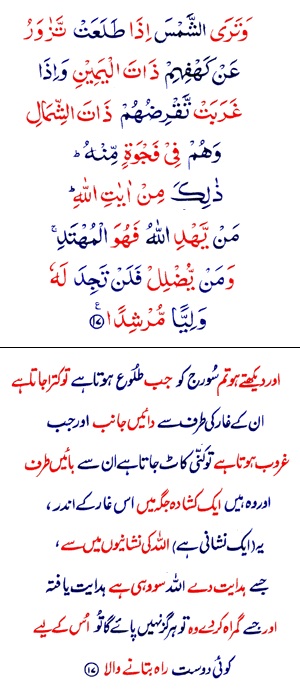 وَتَرَى الشَّمْسَ اِذَا طَلَعَتْ تَّزٰوَرُ
عَنْ كَهْفِهِمْ ذَاتَ الْيَمِيْنِ وَاِذَا
غَرَبَتْ تَّقْرِضُهُمْ ذَاتَ الشِّمَالِ
وَهُمْ فِيْ فَجْوَةٍ مِّنْهُ ؕ
ذٰلِكَ مِنْ اٰيٰتِ اللّٰهِ ؕ
مَنْ يَّهْدِ اللّٰهُ فَهُوَ الْمُهْتَدِ ۚ
وَمَنْ يُّضْلِلْ فَلَنْ تَجِدَ لَهٗ
وَلِيًّا مُّرْشِدًا ۧ ﴿۱۷﴾
اور دیکھتے ہو تم سُورج کو جب طلُوع ہوتا ہے تو کترا جاتا ہے
ان کے غار کی طرف سے دائیں جانب اور جب
غروب ہوتا ہے تو کنّی کاٹ جاتا ہے ان سے بائیں طرف
اور وہ ہیں ایک کشادہ جگہ میں اس غار کے اندر ،
یہ (ایک نشانی ہے) اللہ کی نشانیوں میں سے ،
جسے ہدایت دے اللہ سو وہی ہے ہدایت یافتہ
اور جسے گمراہ کر دے وہ تو ہرگز نہیں پائے گا تُو اُس کے لیے
کوئی دوست راہ بتانے والا ﴿۱۷﴾